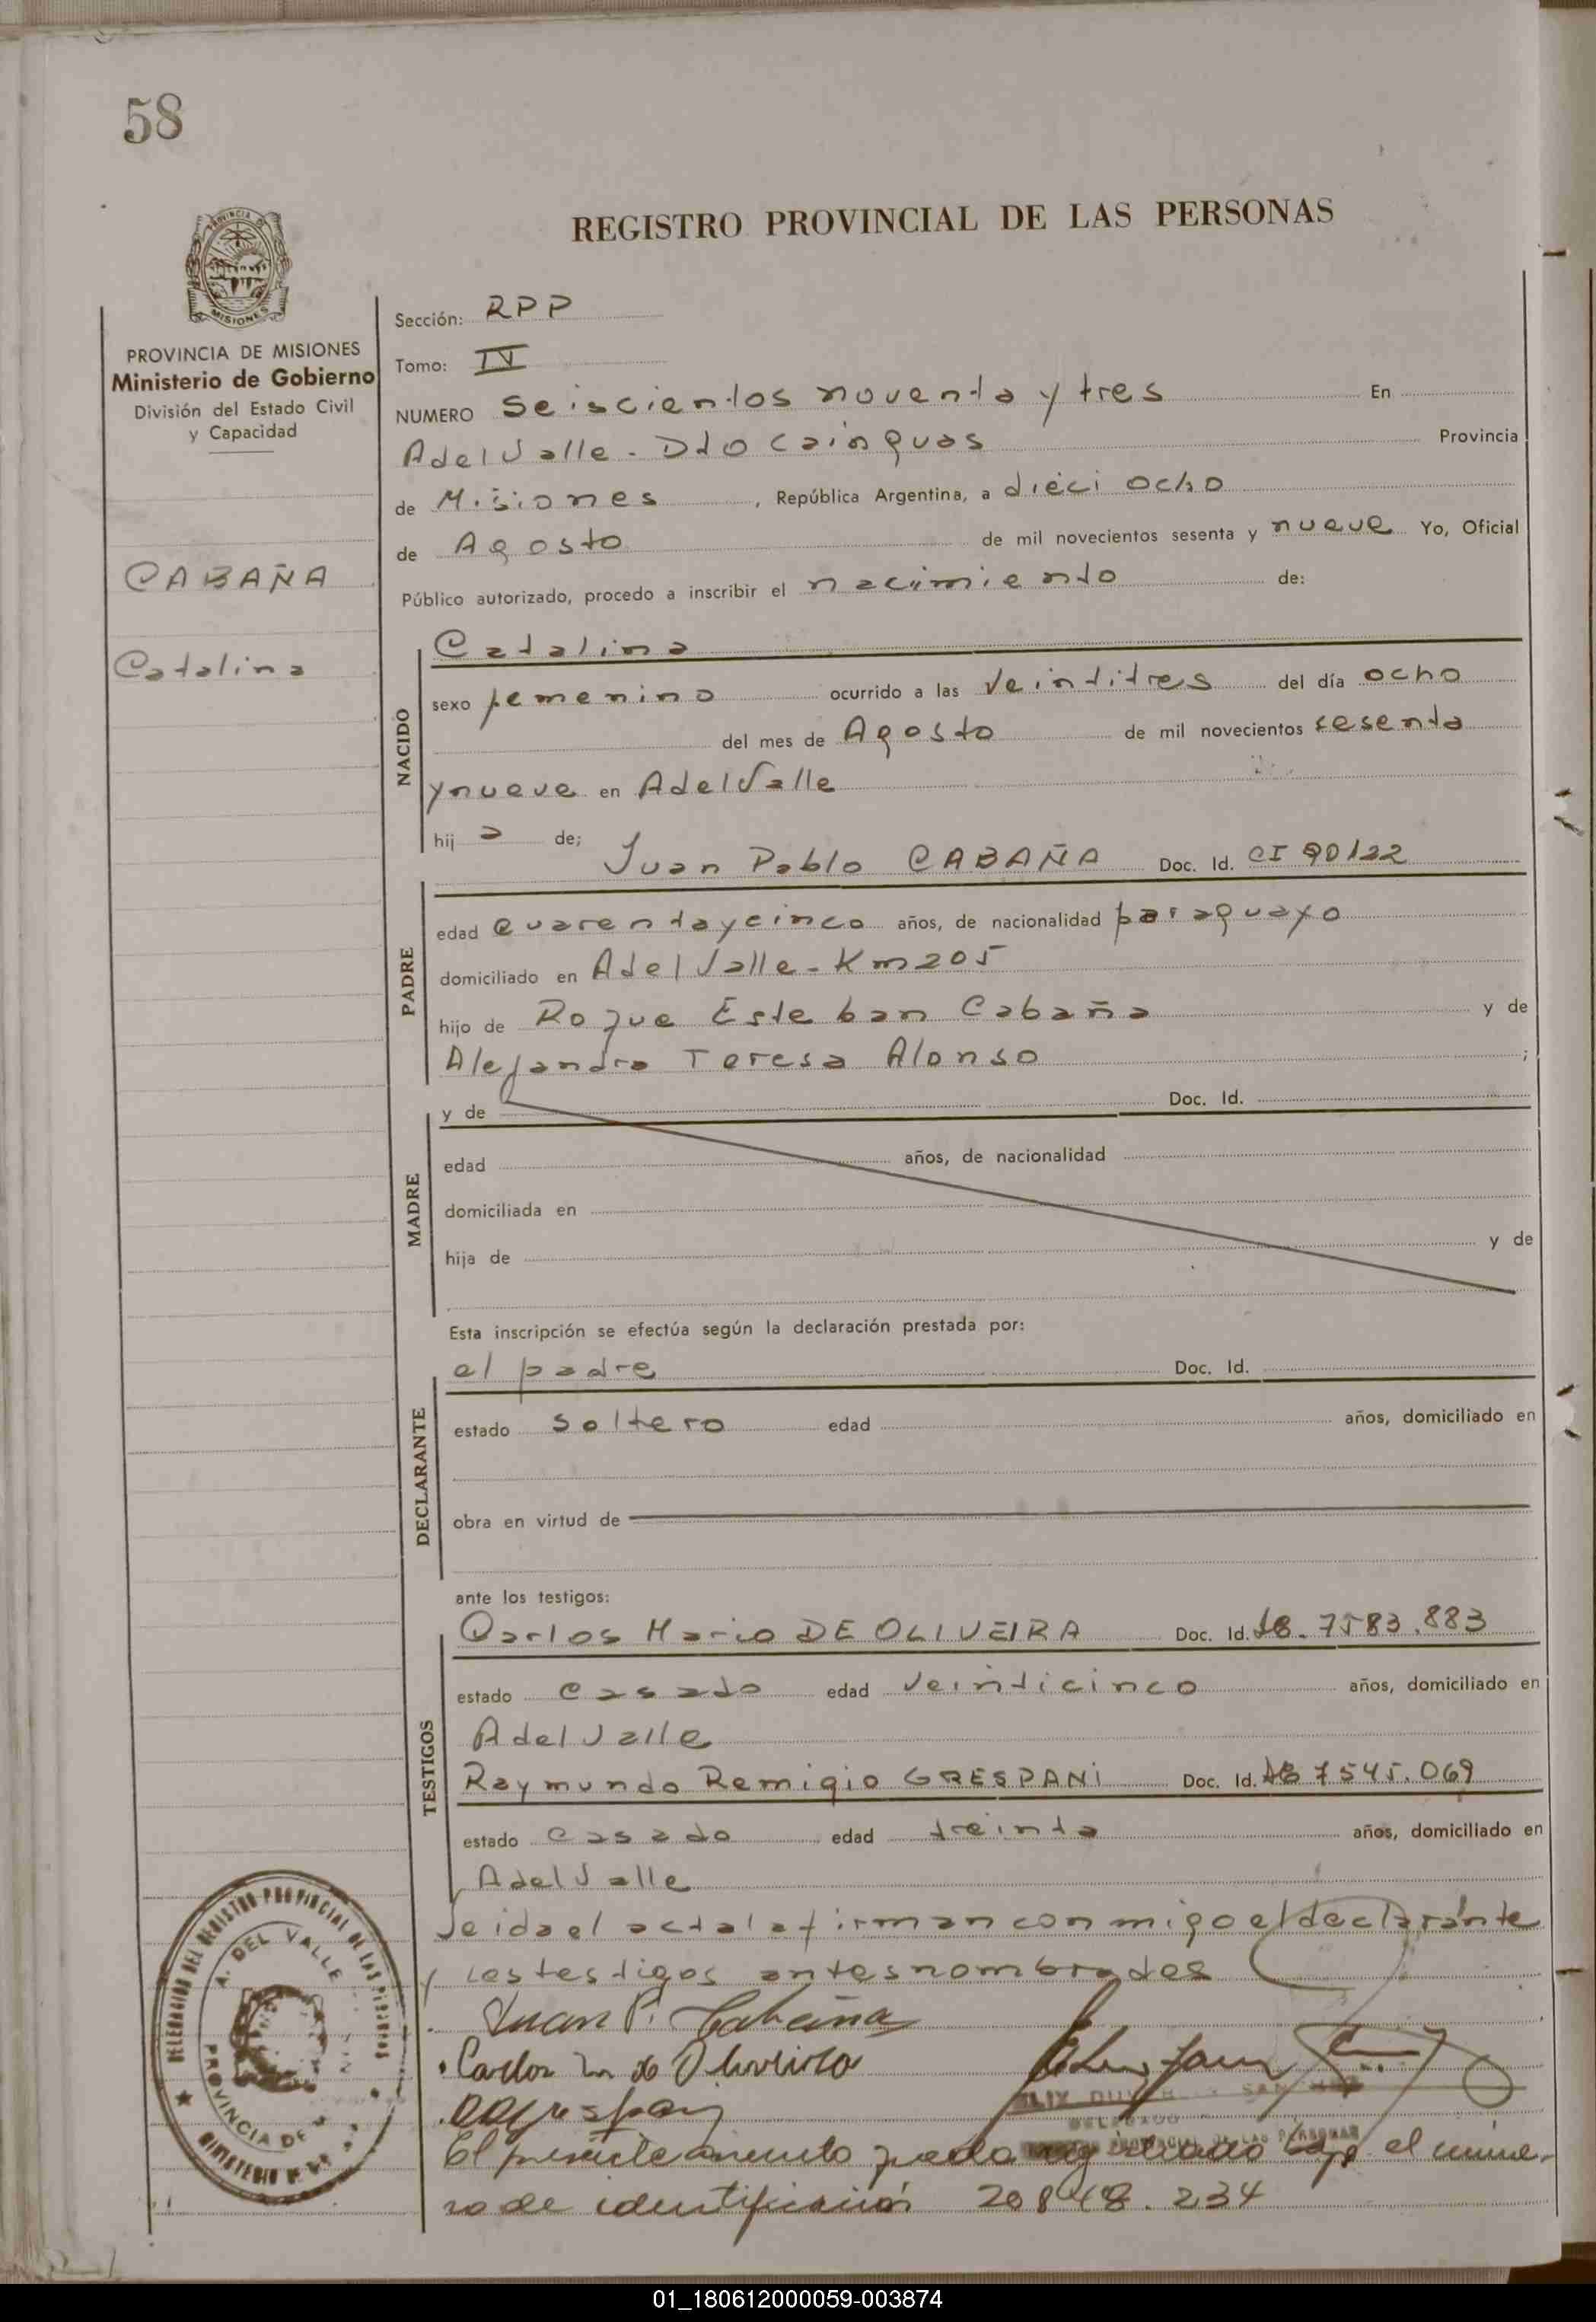 58
REGISTRO PROVINCIAL DE LAS PERSONAS
PROVINCIA DE MISIONES
Ministerio de Gobierno
División del Estado Civil
y Capacidad
CABAÑA
Catalina
Sección: RPP
Tomo: IV
NUMERO Seiscientos noventa y tres En
A del Valle - Dto Cainguas Provincia
de Misiones, República Argentina, a dieci ocho
de Agosto de mil novecientos sesenta y nueve Yo, Oficial
Público autorizado, procedo a inscribir el nacimiento de:
NACIDO
Catalina
sexo femenino ocurrido a las veintitres del día ocho
del mes de Agosto de mil novecientos sesenta
y nueve en A del Valle
hij a de;
Juan Pablo CABAÑA Doc. Id. CI 90122
PADRE
edad Cuarenta y cinco años, de nacionalidad paraguayo
domiciliado en A del Valle - Km 205
hijo de Roque Esteban Cabaña y de
Alejandra Teresa Alonso ;
MADRE
y de Doc. Id.
edad años, de nacionalidad
domiciliada en
hija de y de
Esta inscripción se efectúa según la declaración prestada por:
DECLARANTE
el padre Doc. Id.
estado soltero edad años, domiciliado en
obra en virtud de
ante los testigos:
TESTIGOS
Carlos Mario DE OLIVEIRA Doc. Id. 7583.883
estado casado edad veinticinco años, domiciliado en
A del Valle
Raymundo Remigio GRESPANI Doc. Id. 7545.069
estado casado edad treinta años, domiciliado en
A del Valle
Leida el acta la firman conmigo el declarante
y los testigos antes nombrados
Juan P. Cabaña
Carlos M de Oliveira
DELEGADO
El presente queda bajo el núme-
ro de identificación 20848.234
DELEGACION DEL REGISTRO PROVINCIAL DE LAS PERSONAS
A. DEL VALLE
PROVINCIA DE
01_180612000059-003874